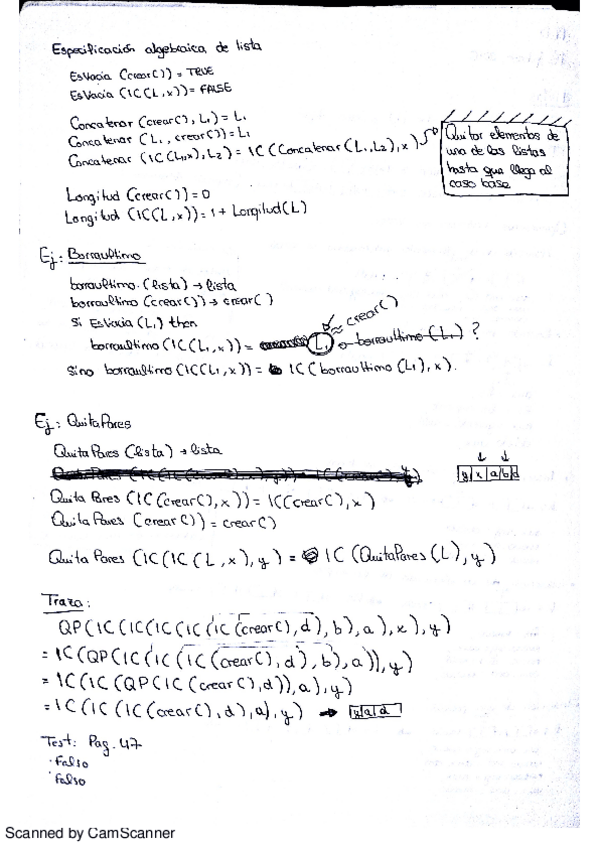 Especificación algebraica de lista
EsVacia (crear()) = TRUE
EsVacia (IC(L,x)) = FALSE
Concatenar (crear(), L1) = L1
Concatenar (L1, crear()) = L1
Concatenar (IC(L1,x), L2) = IC (Concatenar (L1, L2), x)
Quitar elementos de
una de las listas
hasta que llego al
caso base
Longitud (crear()) = 0
Longitud (IC(L,x)) = 1 + Longitud(L)
Ej: Borraultimo
borraultimo (lista) → lista
borraultimo (crear()) → crear()
Si EsVacia (L1) then
≈ crear()
borraultimo (IC(L1,x)) = L1 o borraultimo (L1) ?
Sino borraultimo (IC(L1,x)) = IC (borraultimo (L1), x).
Ej: QuitaPares
QuitaPares (lista) → lista
y x a b d
Quita Pares (IC (crear(), x)) = IC (crear(), x)
Quita Pares (crear()) = crear()
Quita Pares (IC (IC (L, x), y) = IC (QuitaPares (L), y)
Traza:
QP (IC (IC (IC (IC (IC (crear(), d), b), a), x), y)
= IC (QP (IC (IC (IC (crear(), d), b), a)), y)
= IC (IC (QP (IC (crear(), d)), a), y)
= IC (IC (IC (crear(), d), a), y) → y a d
Test: Pag. 47
· Falso
· Falso
Scanned by CamScanner